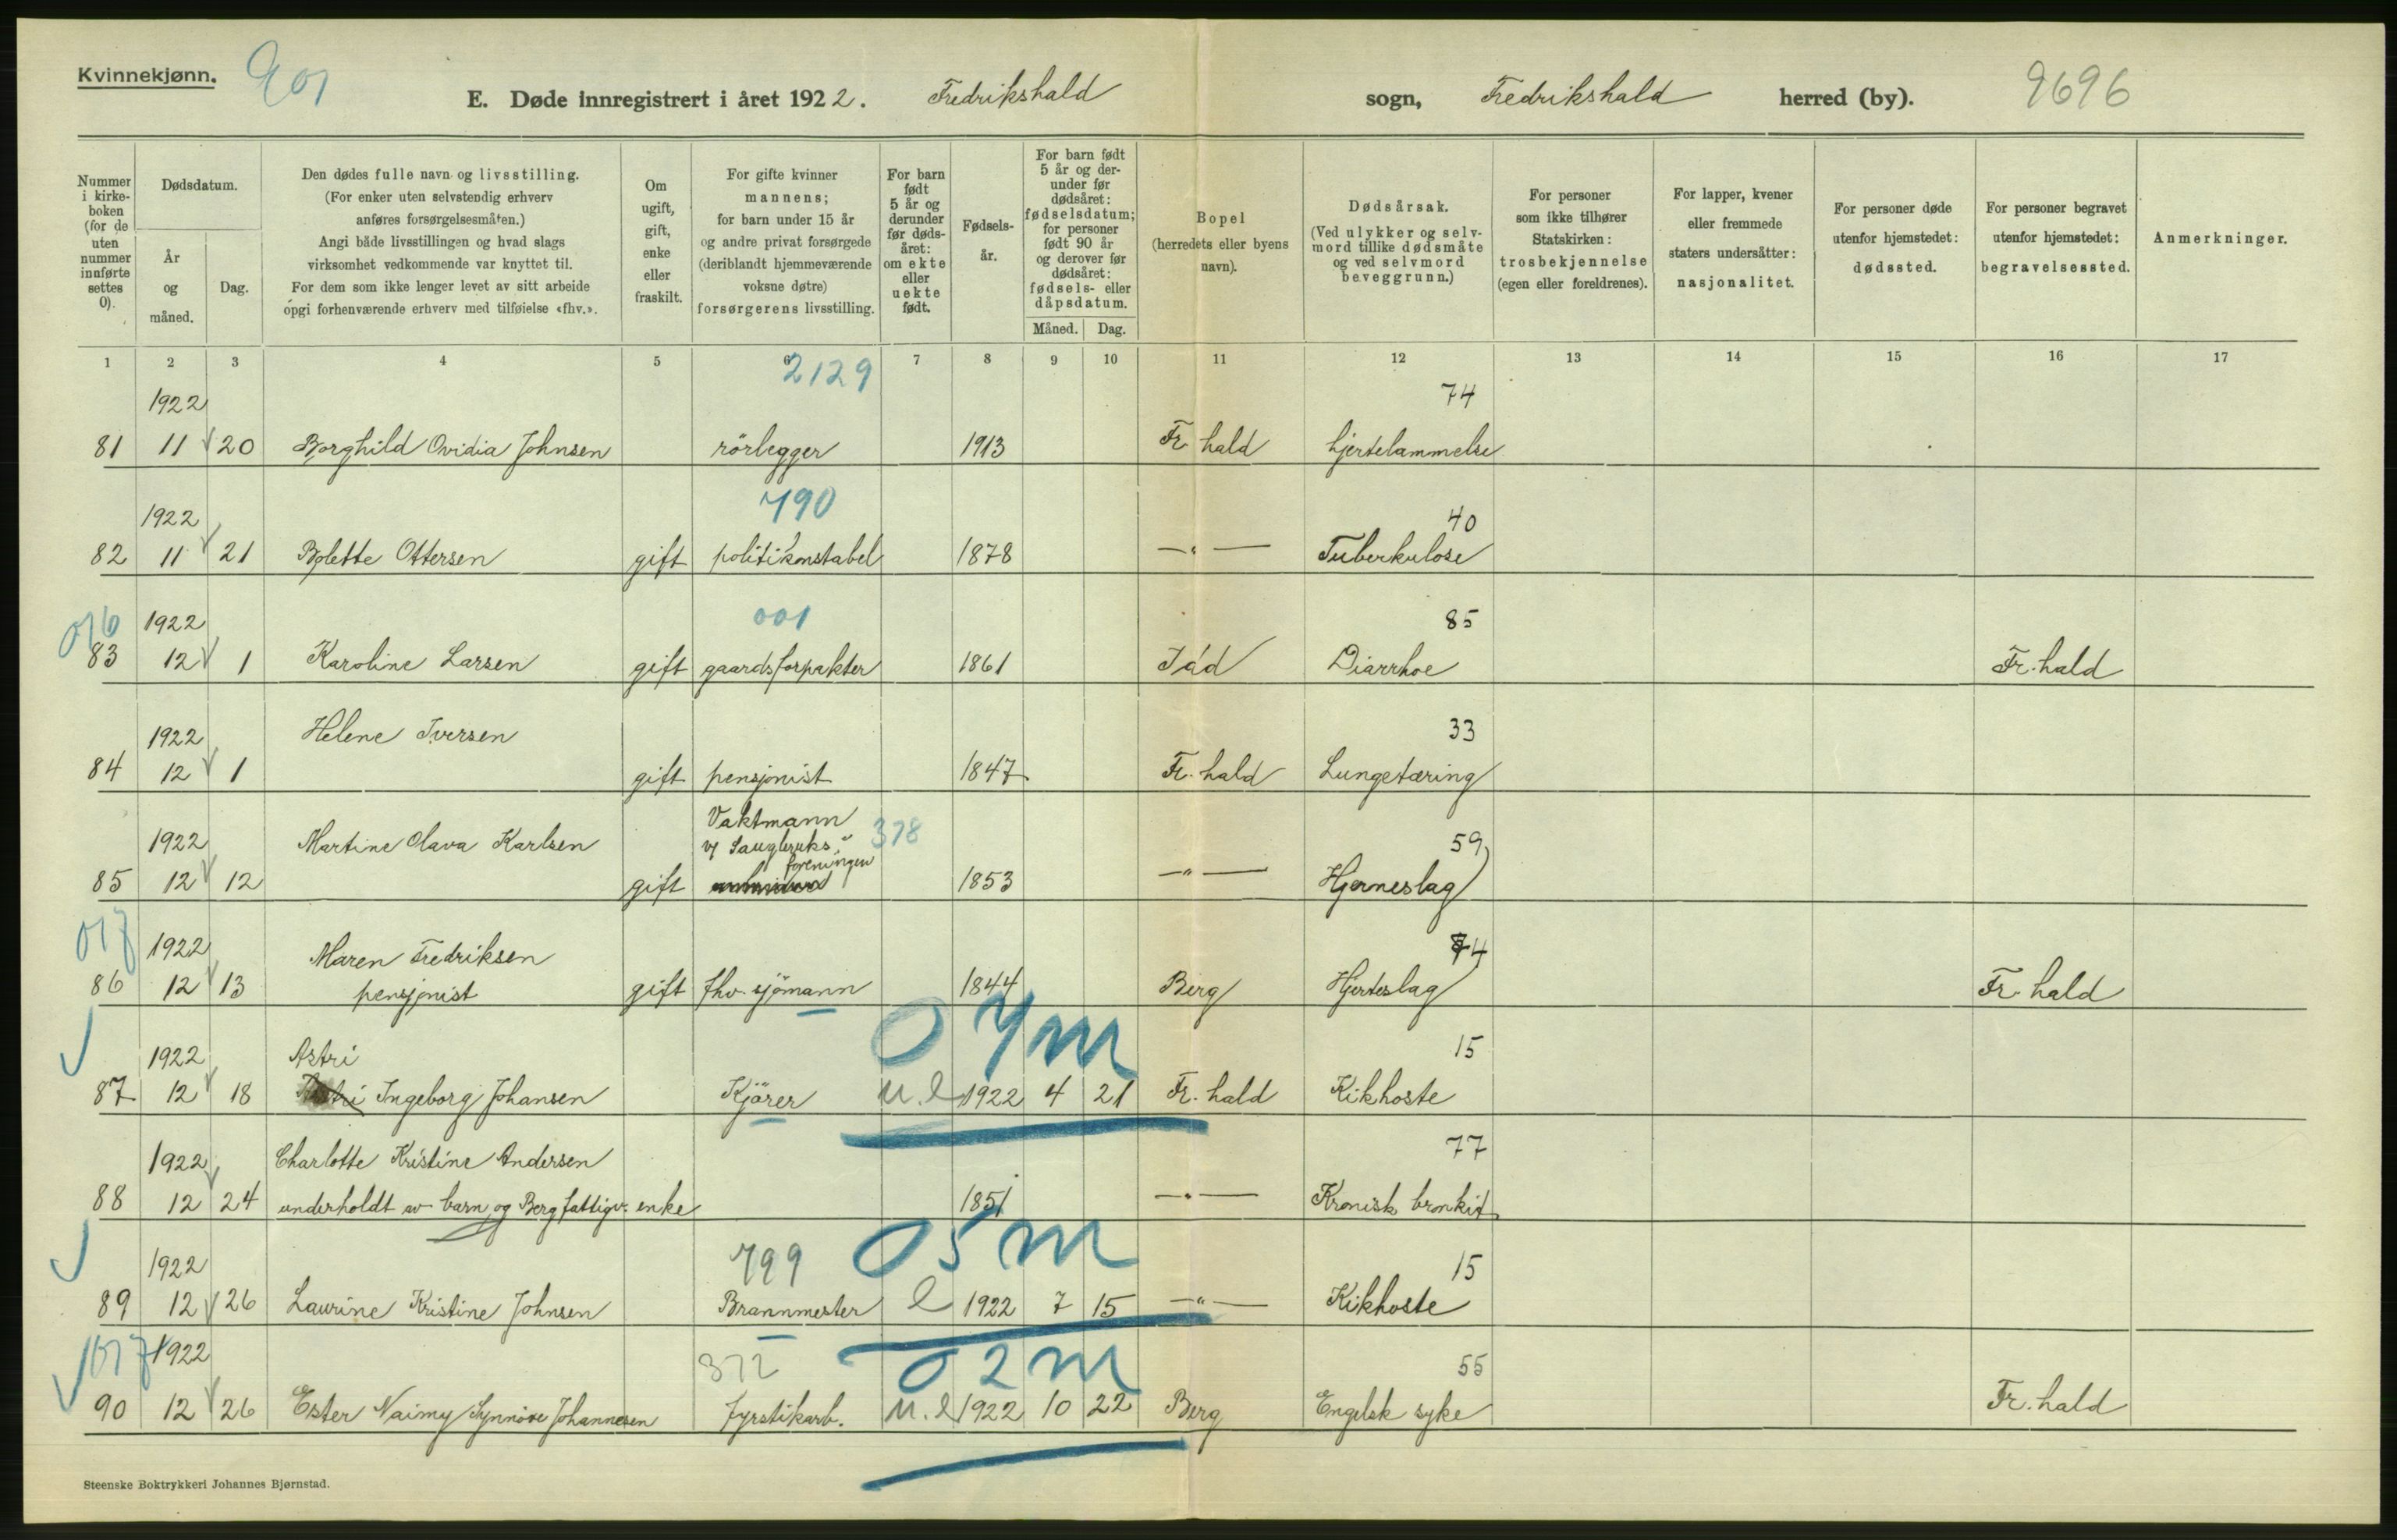 Kvinnekjønn.
901
E. Døde innregistrert i året 1922. Fredrikshald sogn, Fredrikshald herred (by). 9696
Nummer i kirke- boken (for de uten nummer innførte settes 0).
Dødsdatum.
År og måned.
Dag.
Den dødes fulle navn og livsstilling.
(For enker uten selvstendig erhverv
anføres forsørgelsesmåten.)
Angi både livsstillingen og hvad slags
virksomhet vedkommende var knyttet til.
For dem som ikke lenger levet av sitt arbeide
opgi forhenværende erhverv med tilføielse «fhv.».
Om ugift, gift, enke eller fraskilt.
For gifte kvinner
mannens;
for barn under 15 år
og andre privat forsørgede
(deriblandt hjemmeværende
voksne døtre)
forsørgerens livsstilling.
For barn født 5 år og derunder før døds- året: om ekte eller uekte født.
Fødsels- år.
For barn født
5 år og der-
under før
dødsåret:
fødselsdatum;
for personer
født 90 år
og derover før
dødsåret:
fødsels- eller
dåpsdatum.
Måned. Dag.
Bopel
(herredets eller byens
navn).
Dødsårsak.
(Ved ulykker og selv-
mord tillike dødsmåte
og ved selvmord
beveggrunn.)
For personer
som ikke tilhører
Statskirken:
trosbekjennelse
(egen eller foreldrenes).
For lapper, kvener
eller fremmede
staters undersåtter:
nasjonalitet.
For personer døde
utenfor hjemstedet:
dødssted.
For personer begravet
utenfor hjemstedet:
begravelsessted.
Anmerkninger.
1 2 3 4 5 6 7 8 9 10 11 12 13 14 15 16 17
1922 2129 74
81 11 20 Borghild Ovidia Johnsen rörlegger 1913 Fr. hald hjertelammelse
1922 790 40
82 11 21 Bolette Ottersen gift politikonstabel 1878 —"— Tuberkulose
016 1922 001 85
83 12 1 Karoline Larsen gift gaardsforpakter 1861 Idd Diarrhoe Fr. hald
1922 Helene Iversen 33
84 12 1 gift pensjonist 1847 Fr. hald Lungetæring
Vaktmann
1922 Martine Olava Karlsen v/ Saugbruks" 378 59
foreningen
85 12 12 gift 1853 —"— Hjerneslag
017 1922 Maren Fredriksen 74
86 12 13 pensjonist gift fhv. sjömann 1844 Berg Hjerteslag Fr. hald
07m
1922 Astri 15
87 12 18 Ingeborg Johansen Kjörer u. e 1922 4 21 Fr. hald Kikhoste
1922 Charlotte Kristine Andersen 77
88 12 24 underholdt av barn og Berg fattigv. enke 1851 —"— Kronisk bronkit
1922 799 05m 15
89 12 26 Laurine Kristine Johnsen Brannmester e 1922 7 15 —"— Kikhoste
017 1922 372 02m 55
90 12 26 Ester Naimy Synnöve Johannesen fyrstikarb. u. e 1922 10 22 Berg Engelsk syke Fr. hald
Steenske Boktrykkeri Johannes Bjørnstad.